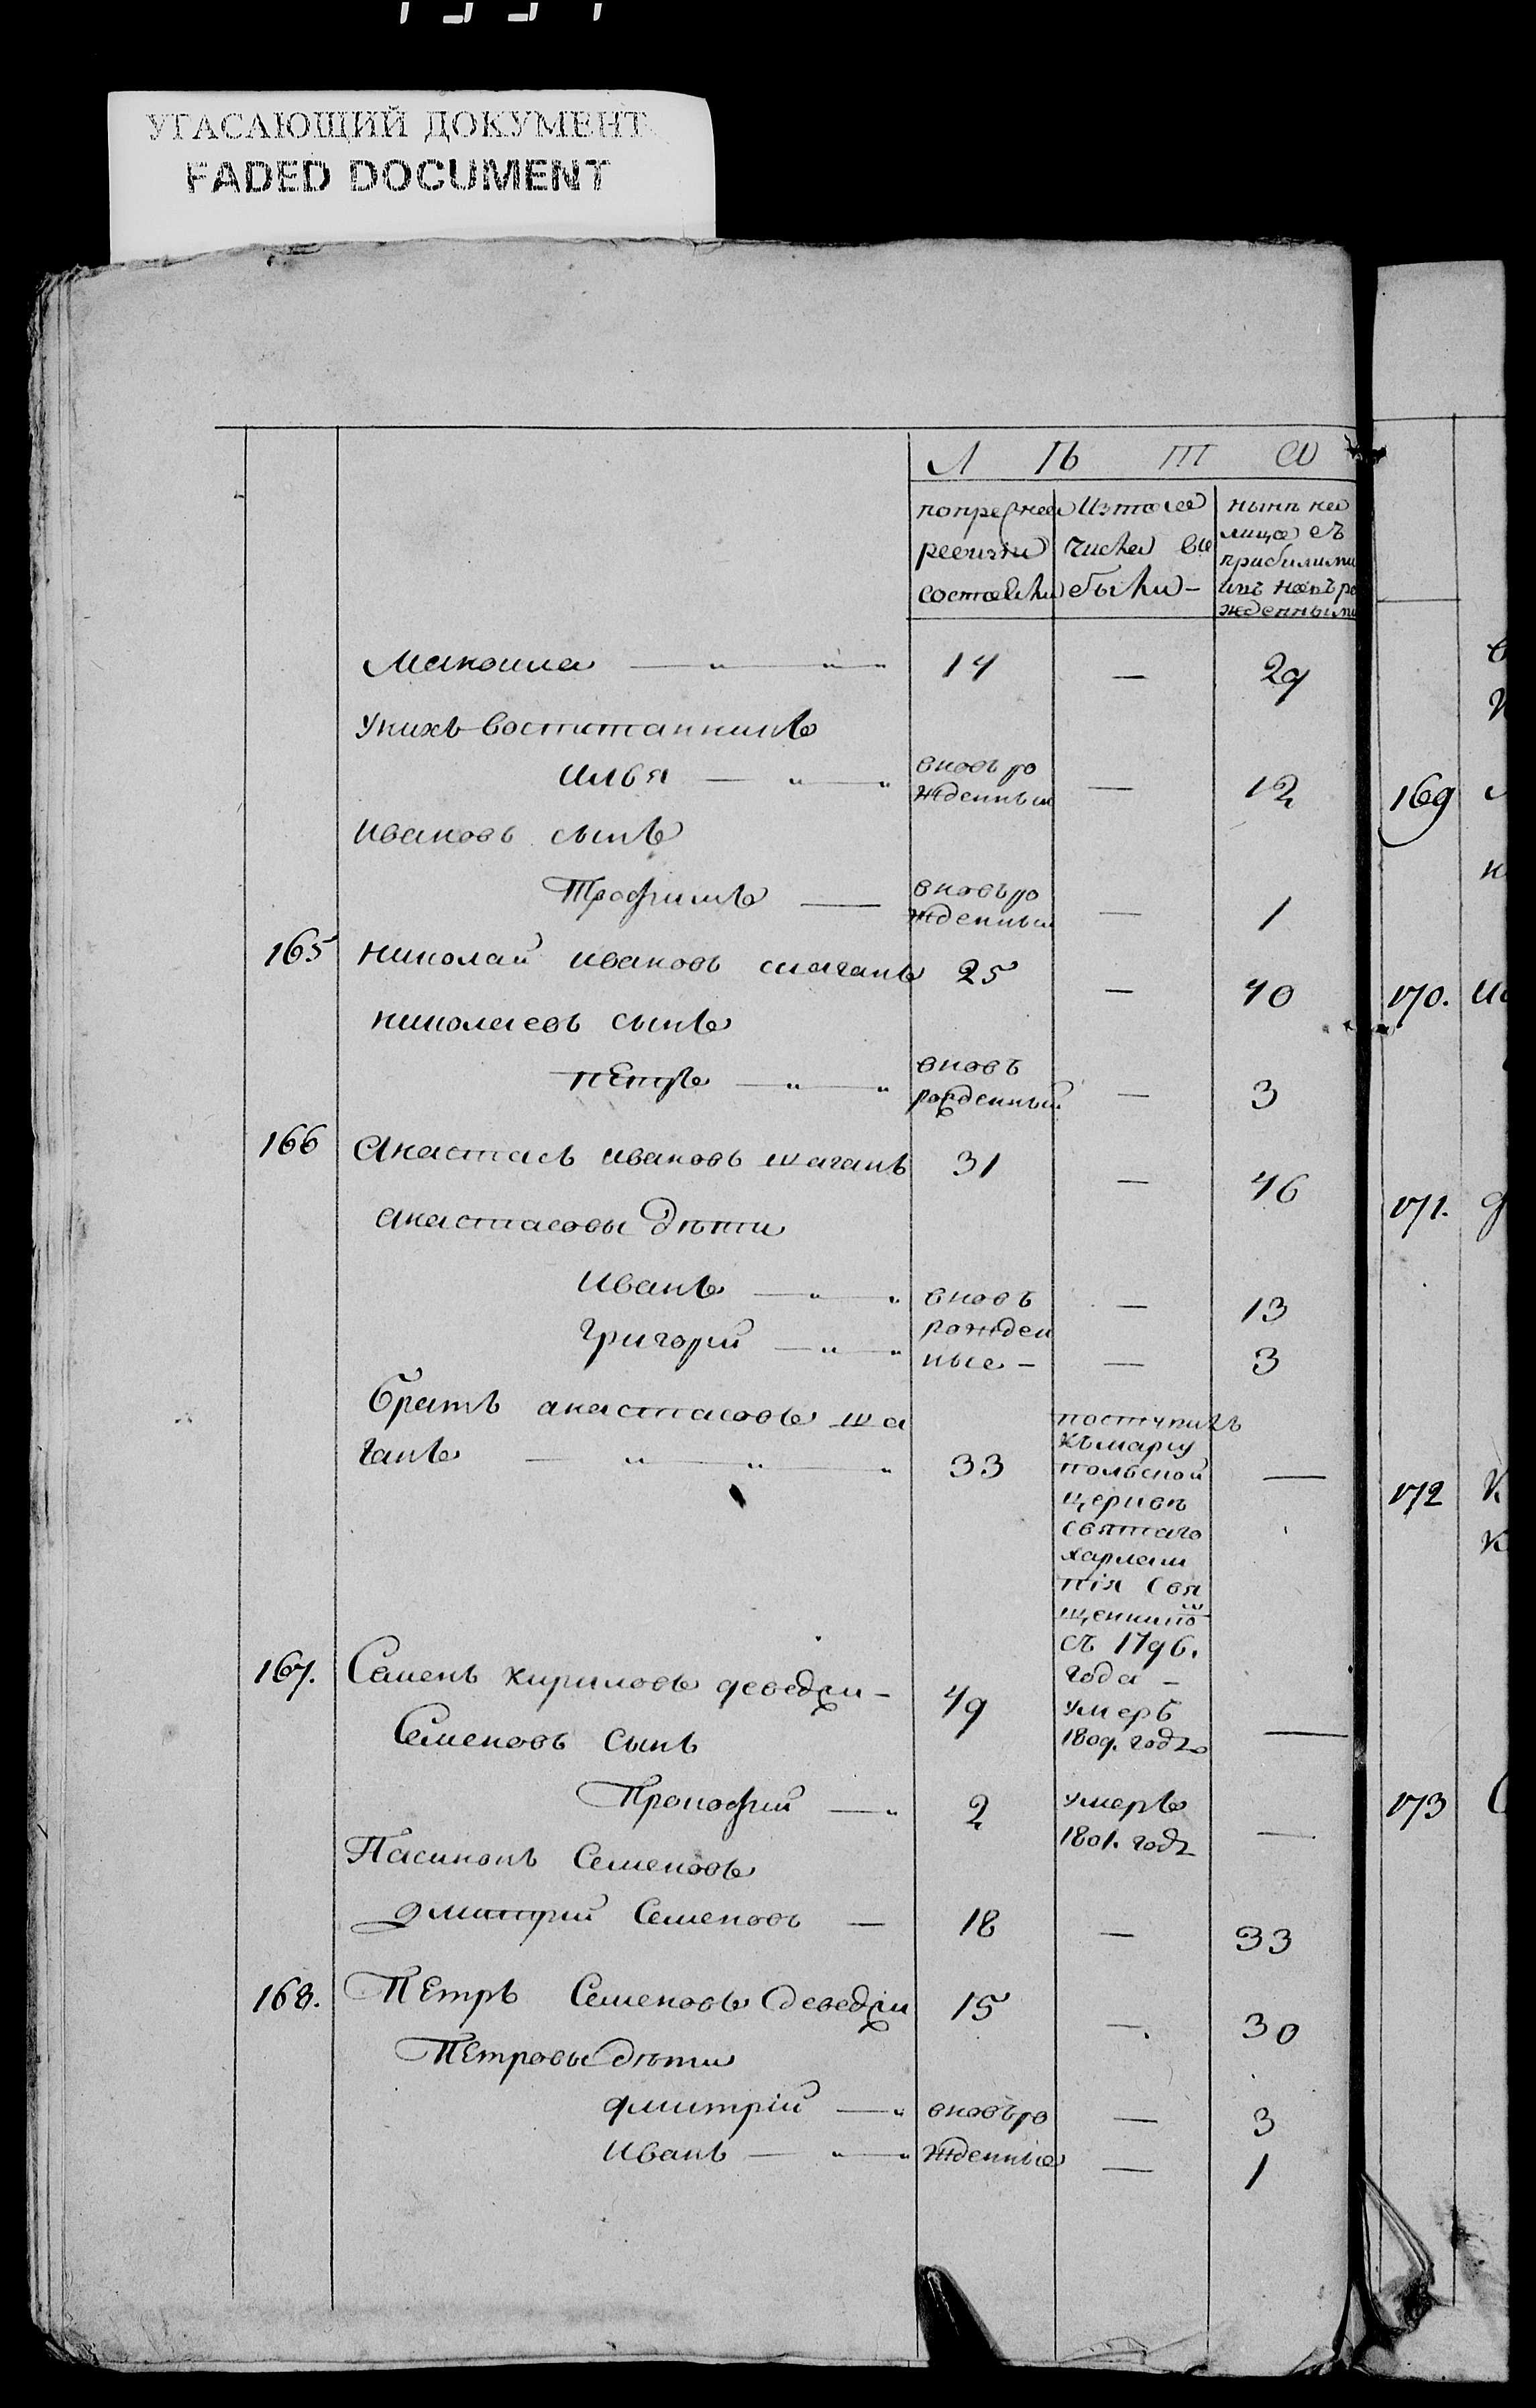 УГАСАЮЩИЙ ДОКУМЕНТ
FADED DOCUMENT
Л Ѣ Т А
попрежнеи ревизіи состояли
Изтого числа выбыли -
нынѣ на лицо съ прибылими
рожденными
Манойла — 14 — 29
Унихъ воспитанникъ
Илья — вновь рожденныи — 12
Ивановъ сынъ
Трофимъ — вновь рожденныи — 1
165 Николаи Ивановъ шаганъ 25 — 40
Николаевъ сынъ
Петръ — вновь рожденный — 3
166 Анастасъ Ивановъ шаганъ 31 — 46
Анастасовы дѣти
Иванъ — вновь рожден — 13
Григорій — ные - — 3
Братъ анастасовъ ша
ганъ — 33 —
поступилъ
къ мариу
польской
церквѣ
святаго
харлам
пія свя
щенникомъ
съ 1796.
года -
167. Семенъ Кириловъ деведжи - 49 умеръ 1809. года —
Семеновъ сынъ
Прокофій — 2 умеръ 1801. года —
Пасинокъ Семеновъ
Дмитрій Семеновъ — 18 — 33
168. Петръ Семеновъ деведжи 15 — 30
Петровы дѣти
Дмитрій — вновь ро — 3
Иванъ — жденные — 1
169
170.
171.
172
173